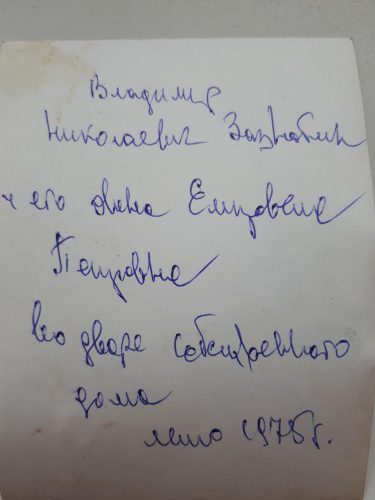 Владимир
Николаевич Зазнобин
и его жена Елизавета
Петровна
во дворе собственного
дома
лето 1975г.